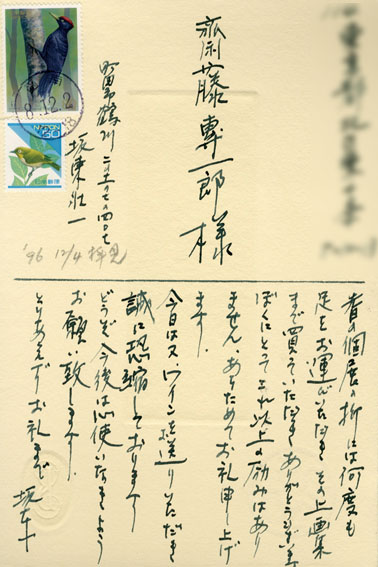 齋藤專一郎様
町田市鶴川
坂東壮一
8.12.2
NIPPON
日本郵便
'96 12/4 拝見
春の個展の折には何度も
足をお運びいただき その上画集
まで買っていただき ありがとうございます
ぼくにとってこれ以上の励みはあり
ません。あらためてお礼申し上げ
ます。
今日はスワインを送りいただき
誠に恐縮しております
どうぞ今後は心使いなきよう
お願い致します。
とりあえずお礼まで
坂東